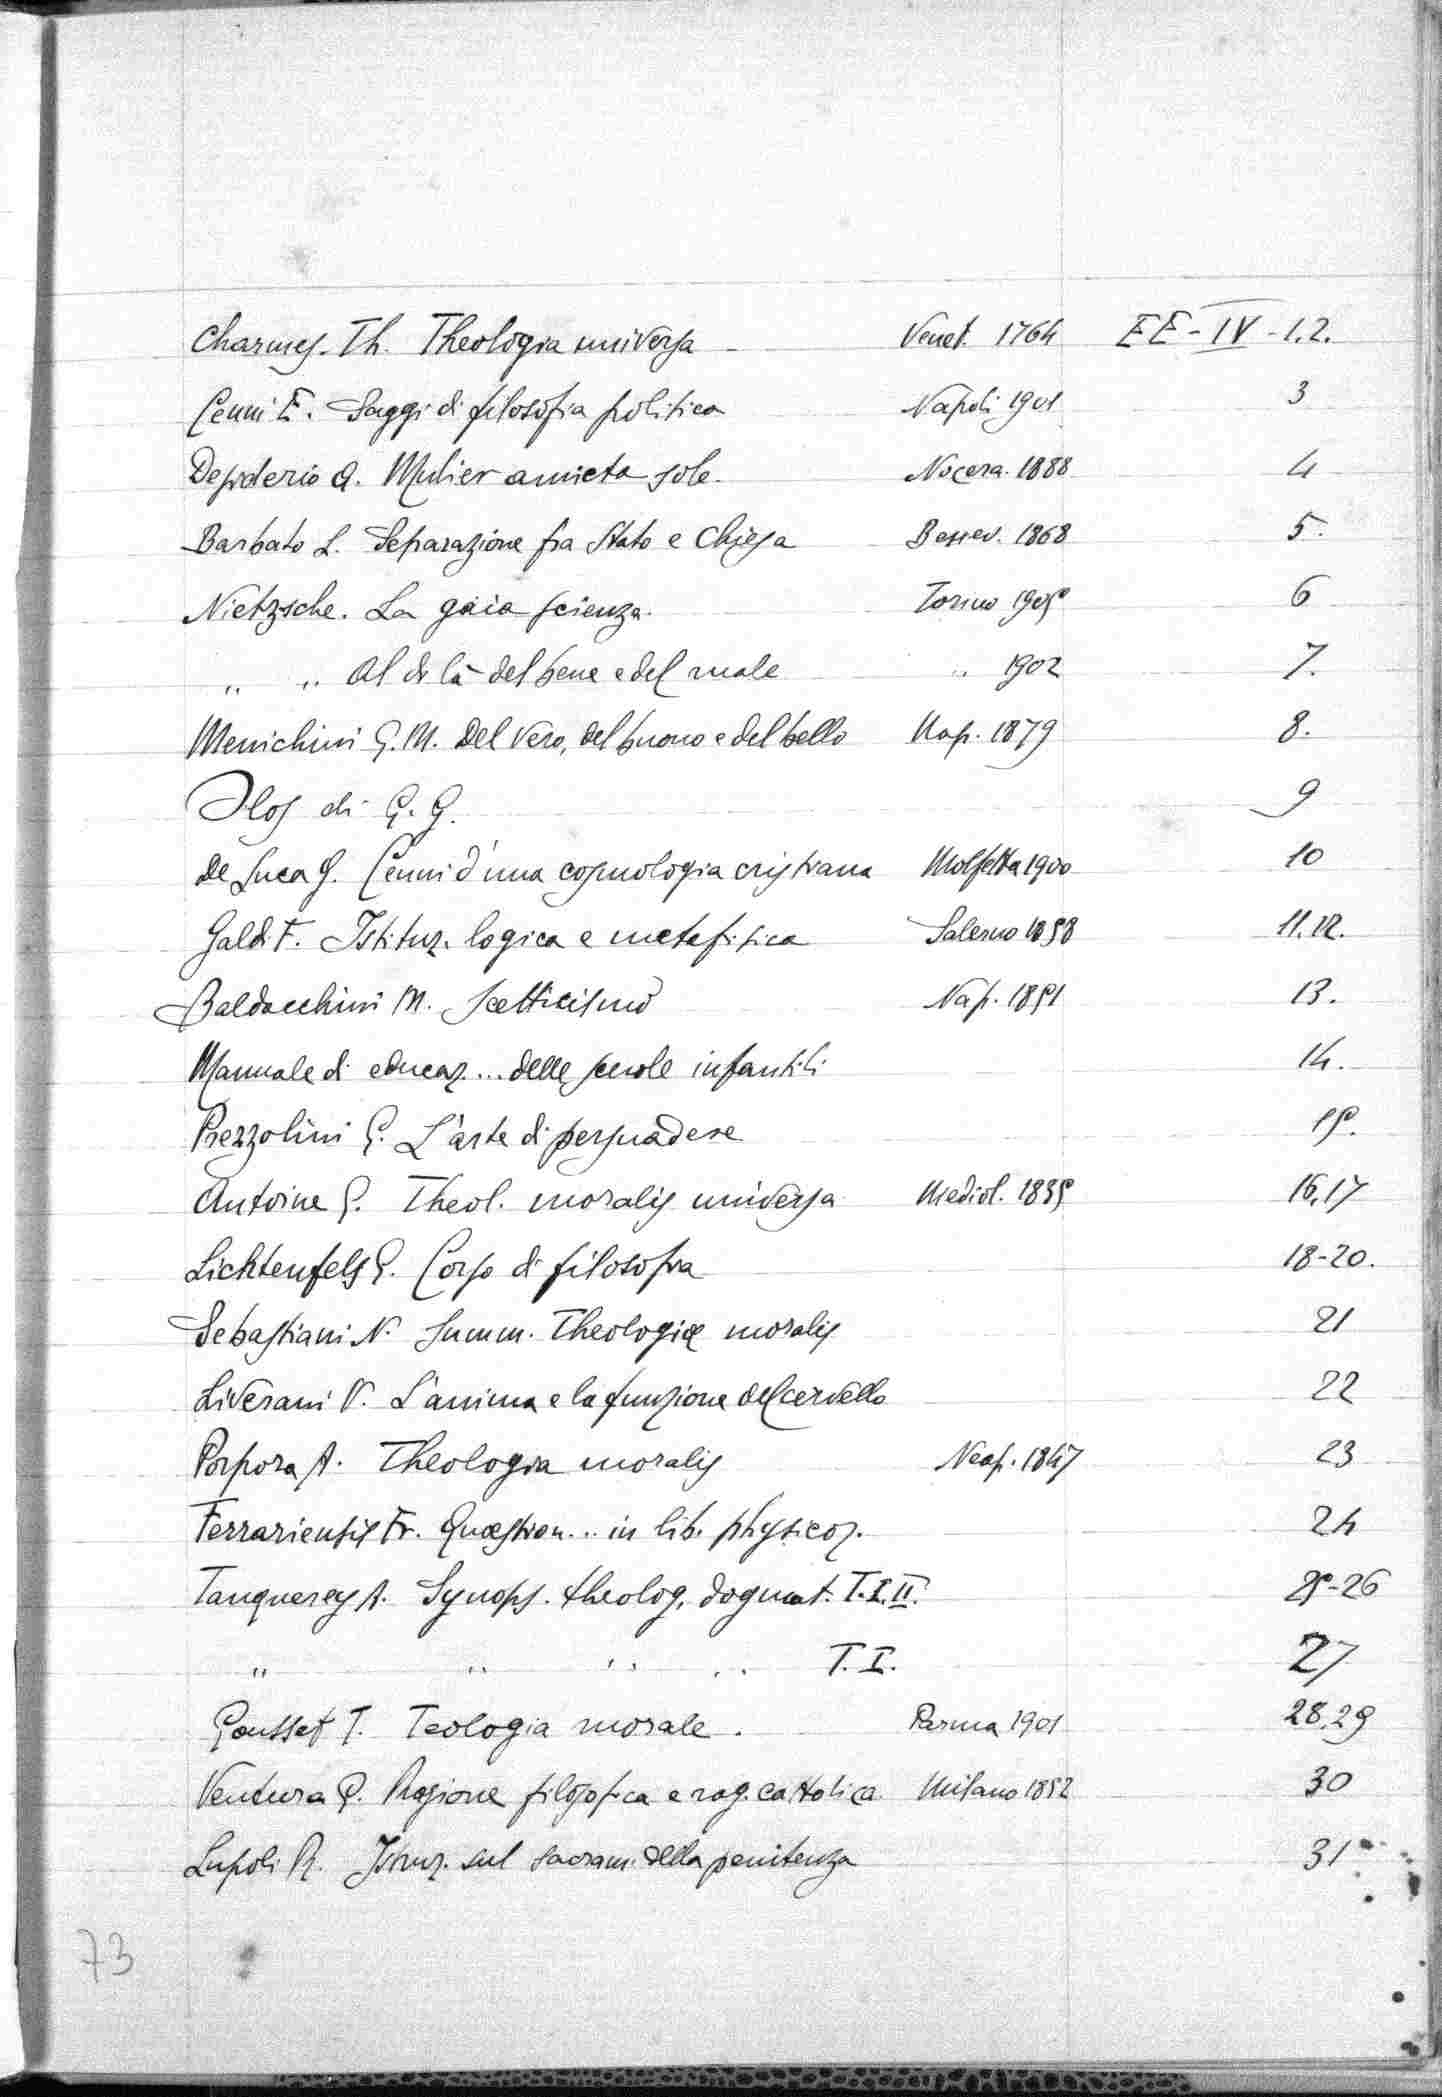 Charmes. Th. Theologia universa - Venet. 1764 EE - IV - 1.2.
Cenni E. Saggi di filosofia politica Napoli 1901 3
Desiderio A. Mulier amicta sole. Nocera. 1888 4
Barbato L. Separazione fra Stato e Chiesa 1868 5.
Nietzsche. La gaia scienza. Torino 1905 6
" " Al di là del bene e del male " 1902 7.
Menichini G. M. Del vero, del buono e del bello Nap. 1879 8.
Ilos di G. G. 9
De Luca G. Cenni d'una cosmologia cristiana Molfetta 1900 10
Galdi F. Istituz. logica e metafisica Salerno 1858 11.12.
Baldacchini M. Scetticismo Nap. 1851 13.
Manuale di educaz... delle scuole infantili 14.
Prezzolini G. L'arte di persuadere 15.
Antoine G. Theol. moralis universa Mediol. 1835 16,17
Lichtenfels G. Corso di filosofia 18-20.
Sebastiani N. Summ. Theologiæ moralis 21
Liverani V. L'anima e la funzione del cervello 22
Porpora A. Theologia moralis Neap. 1847 23
Ferrariensis Fr. Quæstion... in lib. physicor. 24
Tanquerey A. Synops. theolog. dogmat. T. I. II. 25-26
" " " " T. I. 27
Gousset T. Teologia morale. Parma 1901 28,29
Ventura G. Ragione filosofica e rag. cattolica Milano 1852 30
Lupoli R. Istruz. sul sacram. della penitenza 31
73